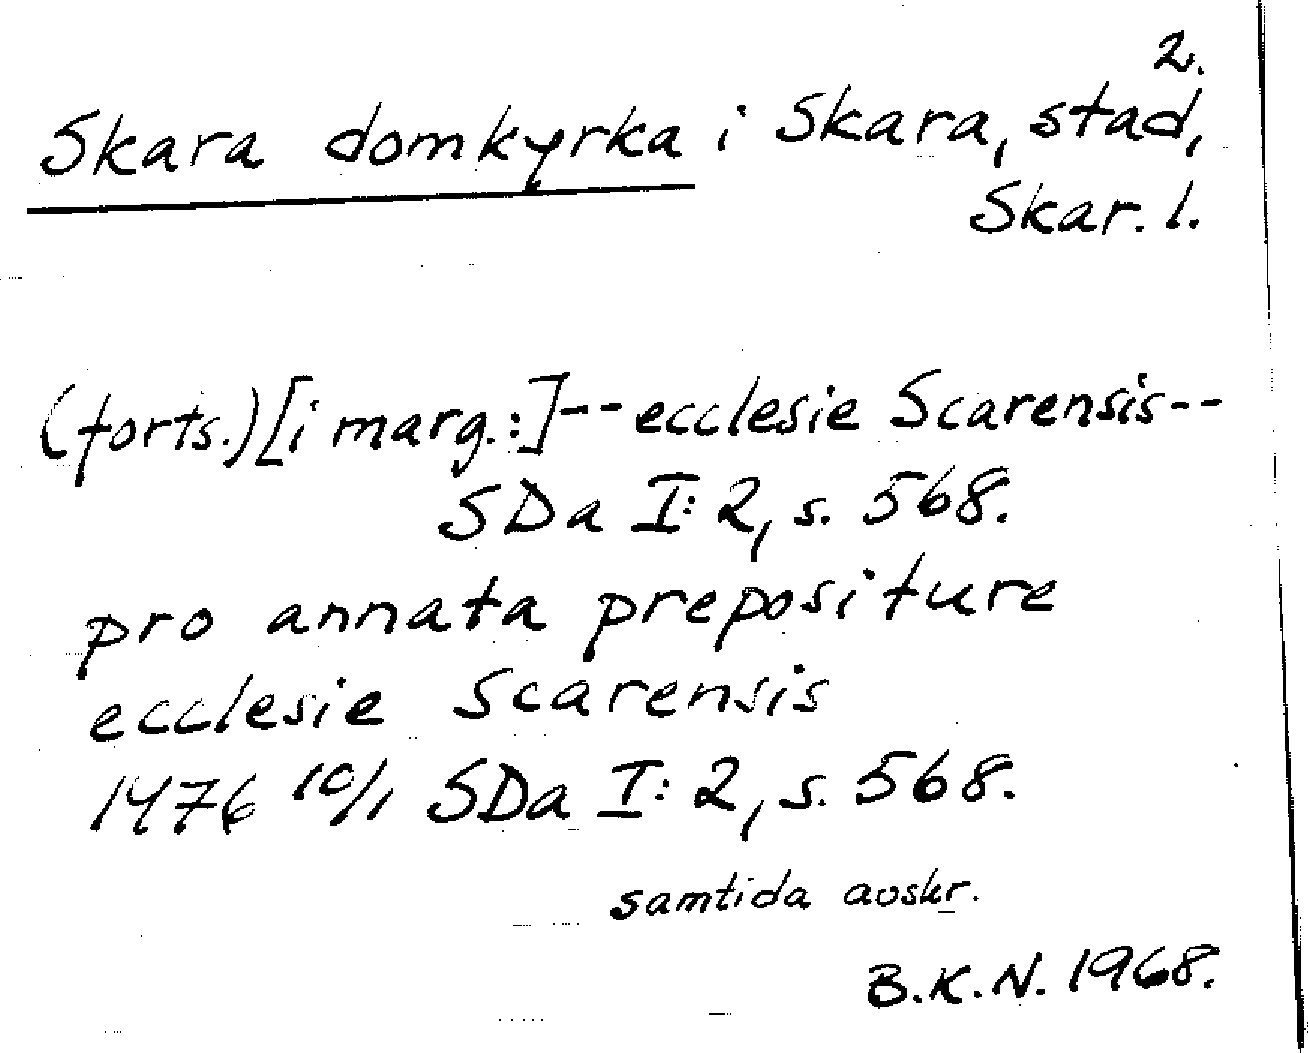 2.
Skara domkyrka i Skara, stad,
Skar. l.
(forts.) [i marg.:] -- ecclesie Scarensis --
SDa I:2, s. 568.
pro annata prepositure
ecclesie Scarensis
1476 10/1 SDa I:2, s. 568.
samtida avskr.
B.K.N. 1968.